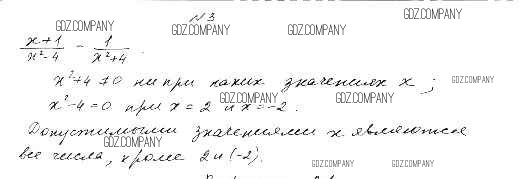 N 3
GDZ.COMPANY
GDZ.COMPANY
GDZ.COMPANY
GDZ.COMPANY
x+1 / x²-4 - 1 / x²+4 .
x²+4 ≠ 0 ни при каких значениях x ;
GDZ.COMPANY
x²-4=0 при x = 2 и x = -2 .
GDZ.COMPANY
GDZ.COMPANY
Допустимыми значениями x являются
GDZ.COMPANY
все числа, кроме 2 и (-2).
GDZ.COMPANY
GDZ.COMPANY
GDZ.COMPANY